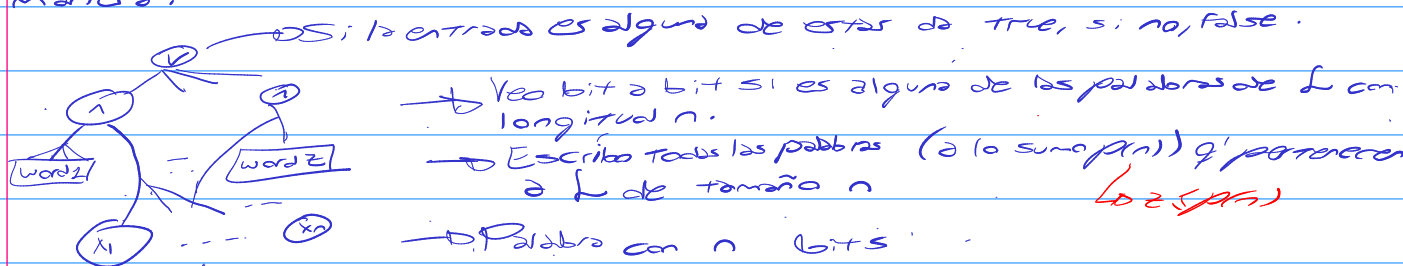 Si la entrada es alguna de estas da true, si no, false.
V
Λ Λ
Veo bit a bit si es alguna de las palabras de L con
longitud n.
word1 word z
Escribo todas las palabras (a lo sumo p(n)) q' pertenecen
a L de tamaño n
z ≤ p(n)
x1 xn
Palabra con n bits